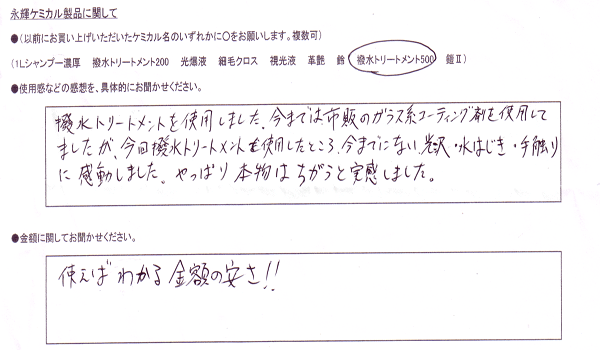 永輝ケミカル製品に関して
●(以前にお買い上げいただいたケミカル名のいずれかに○をお願いします。複数可)
(1Lシャンプー濃厚 撥水トリートメント200 光爆液 細毛クロス 視光液 革艶 鈴 撥水トリートメント500 鎧Ⅱ)
●使用感などの感想を、具体的にお聞かせください。
撥水トリートメントを使用しました。今までは市販のガラス系コーティング剤を使用して
ましたが、今回撥水トリートメントを使用したところ、今までにない光沢・水はじき・手触り
に感動しました。やっぱり本物はちがうと実感しました。
●金額に関してお聞かせください。
使えばわかる金額の安さ!!